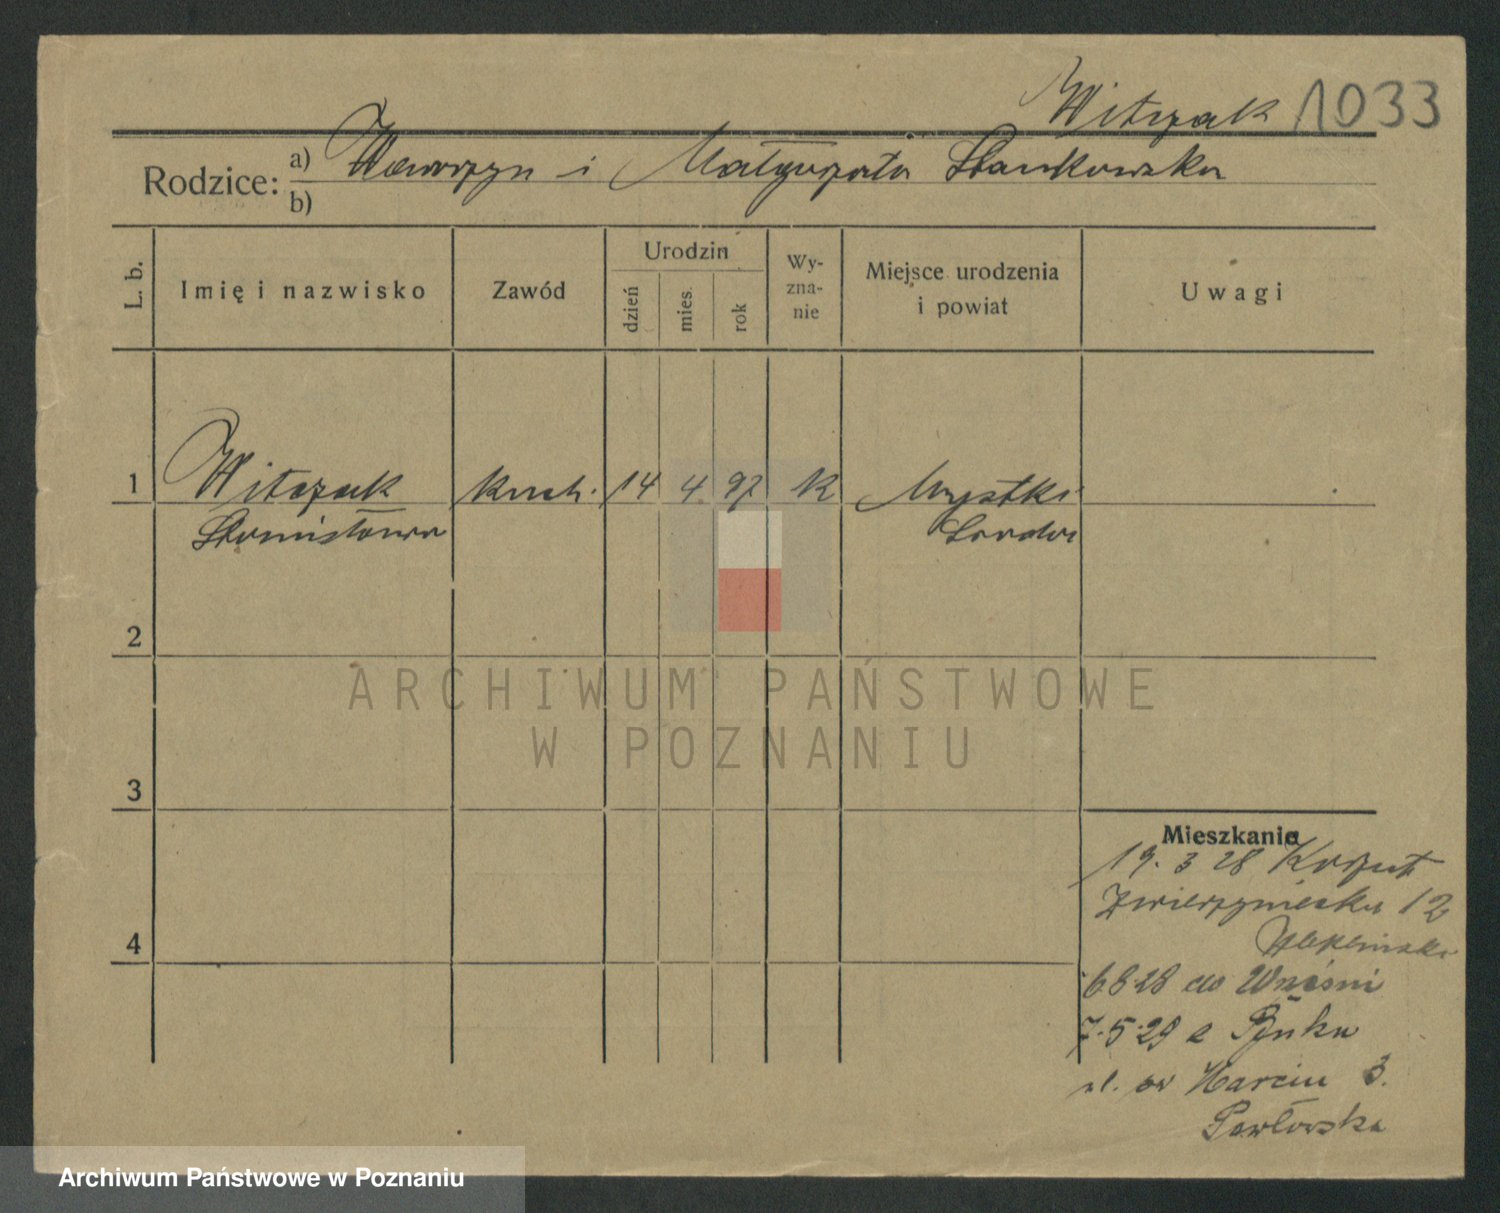 Witczak 1033
Rodzice: a) Wawrzyn i Małgorzata Stankowska
b)
L. b.
Imię i nazwisko
Zawód
Urodzin
dzień
mies.
rok
Wy-
zna-
nie
Miejsce urodzenia
i powiat
Uwagi
1 Witczak kuch. 14 4 97 K Mystki
Stanisława Środa
2
ARCHIWUM PAŃSTWOWE
W POZNANIU
3
Mieszkanie
19. 3 28
Zwierzyniecka 12
6 8 28 do Wrześni
7.5.29 z
ul. św Marcin 3.
Pawłowska
4
Archiwum Państwowe w Poznaniu